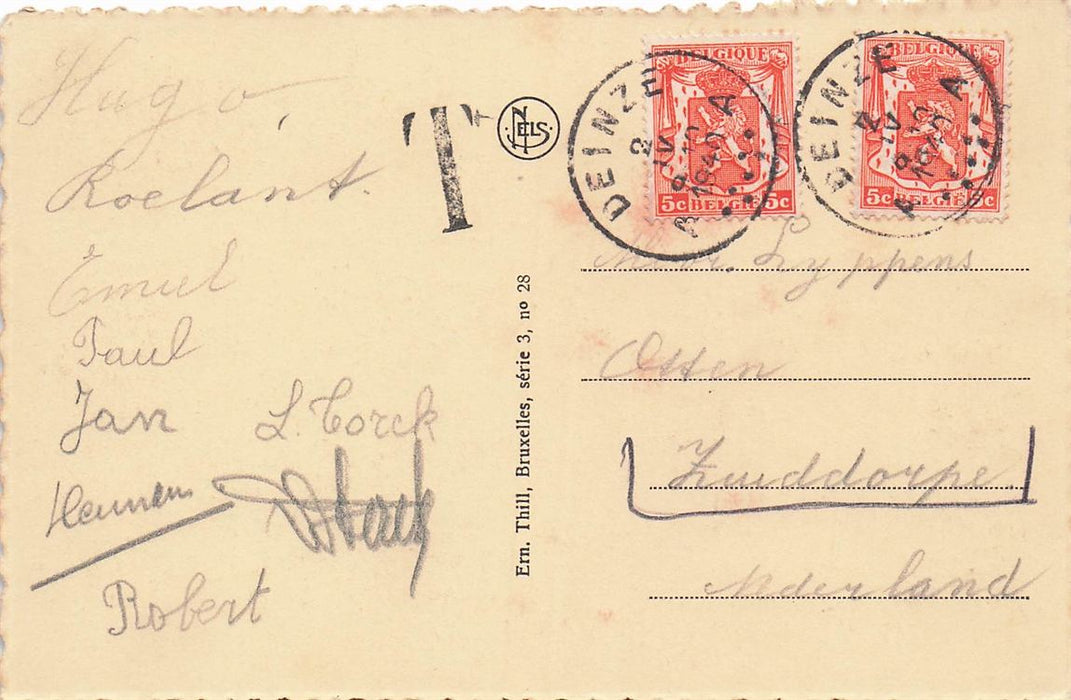 Hugo
Roelant.
Emiel
Paul
Jan
L. Torck
Hennen
Robert
T
NELS
Ern. Thill, Bruxelles, série 3, no 28
BELGIQUE
5c BELGIE 5c
DEINZE A
2
IV
1940
BELGIQUE
5c BELGIE 5c
DEINZE A
2
IV
1940
A
Lyppens
Otten
Zuiddorpe
Nederland